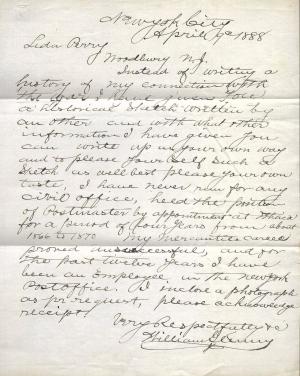 New york City
April 9th 1888
Perry
Woodbury N.J.
Instead of writing a
history of my connection with
I send you
a historical sketch written by
an other and with what other
information I have given you
can write up in your own way
and to please yourself such a
sketch as will best please your own
taste, I have never run for any
civil office, held the position
of Postmaster by appointment at Ithaca
for a period of four years from about
to 1870 My Mercantile career
proved successful, and for
the past twelve years I have
been an Employee in the New york
Postoffice. I inclose a photograph
as pr request, please acknowledge
receipt
Very Respectfully &c
William